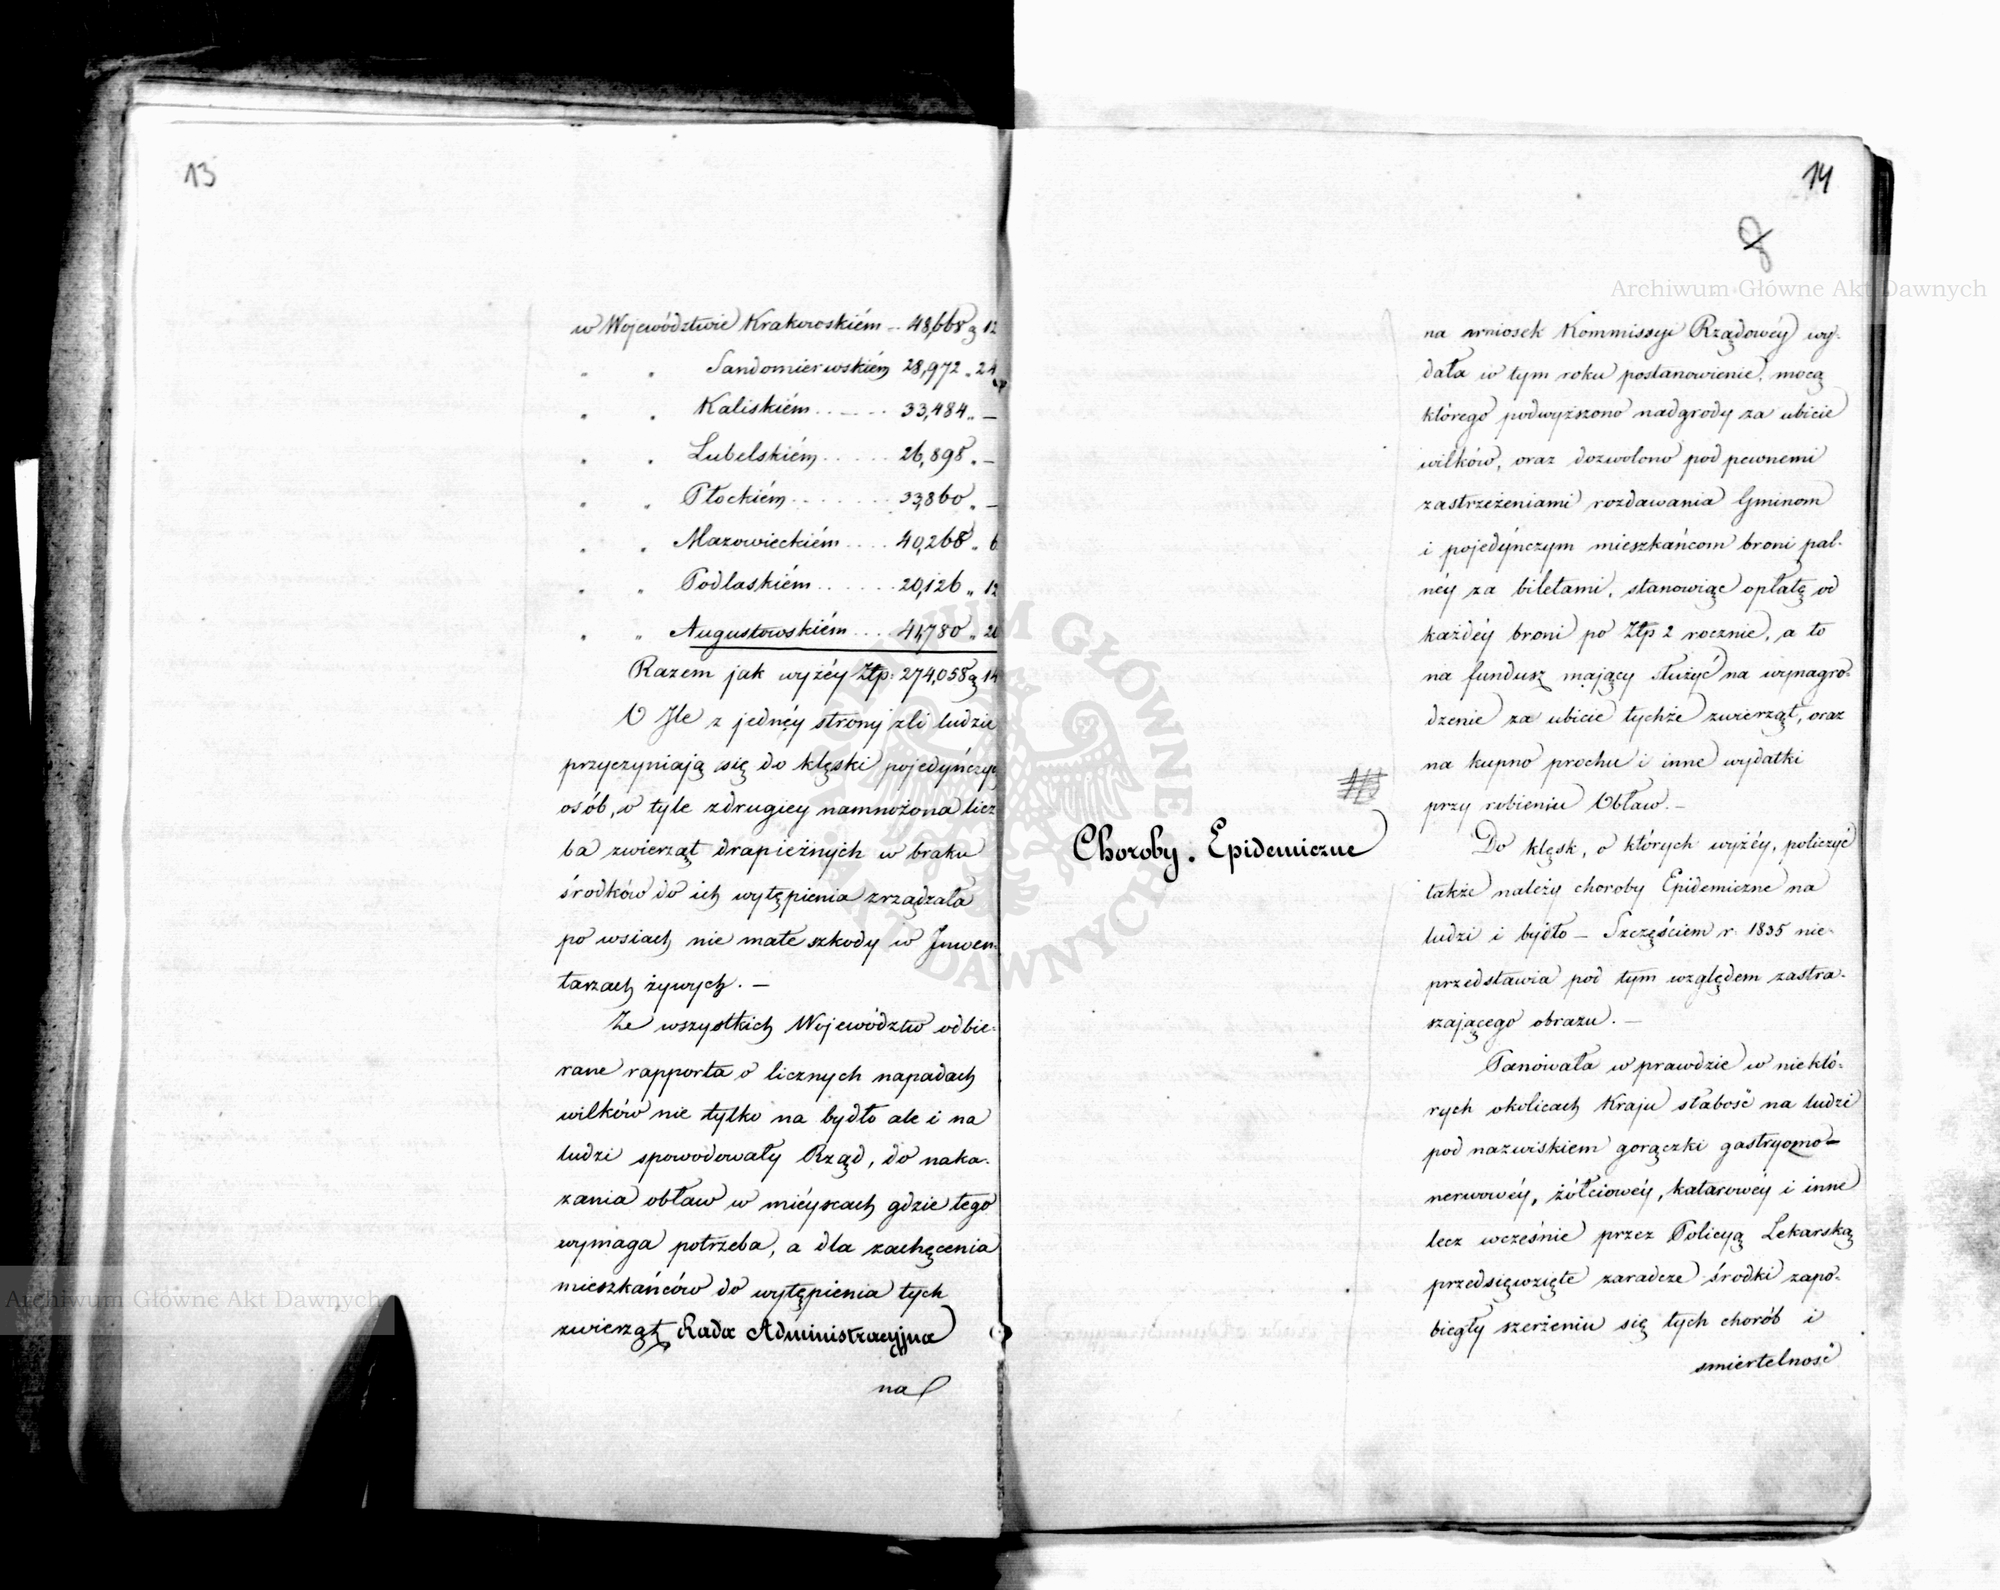 13
w Województwie Krakowskiém .. 48,668 g 12
" " Sandomierskiém 28,972 " 24
" " Kaliskiém ...... 33,484 " —
" " Lubelskiém ..... 26,898 " —
" " Płockiém ....... 33,860 " —
" " Mazowieckiém .... 40,268 " 6
" " Podlaskiém ...... 20,126 " 12
" " Augustowskiém ... 41,780 " 20
Razem jak wyżéy Złp: 274,058 g 14
O Jle z jednéy strony źli ludzie
przyczyniają się do klęski pojedyńczych
osób, o tyle zdrugiey namnożona licz
ba zwierząt drapieżnych w braku
środków do ich wytępienia zrządzała
po wsiach nie małe szkody w Jnwen-
tarzach żywych. —
Ze wszystkich Województw odbie-
rane rapporta o licznych napadach
wilków nie tylko na bydło ale i na
ludzi spowodowały Rząd, do naka-
zania obław w miéyscach gdzie tego
wymaga potrzeba, a dla zachęcenia
mieszkańców do wytępienia tych
zwierząt Rada Administracyjna
na
14
8
na wniosek Kommissyi Rządowéy wy-
dała w tym roku postanowienie, mocą
którego podwyższono nadgrody za ubicie
wilków, oraz dozwolono pod pewnemi
zastrzeżeniami rozdawania Gminom
i pojedyńczym mieszkańcom broni pal-
néy za biletami, stanowiąc opłatę od
każdéy broni po Złp 2 rocznie, a to
na fundusz mający służyć na wynagro-
dzenie za ubicie tychże zwierząt, oraz
na kupno prochu i inne wydatki
przy robieniu Obław. —
Choroby Epidemiczne
Do klęsk, o których wyżéy, policzyć
także należy choroby Epidemiczne na
ludzi i bydło — Szczęściem r. 1835 nie-
przedstawia pod tym względem zastra-
szającego obrazu. —
Panowała w prawdzie w niektó-
rych okolicach Kraju słabość na ludzi
pod nazwiskiem gorączki gastryczno-
nerwowéy, żółciowéy, katarowéy i inne
lecz wcześnie przez Policyą Lekarską
przedsięwzięte zaradcze środki zapo-
biegły szerżeniu się tych chorób i
smiertelność
Archiwum Główne Akt Dawnych
Archiwum Główne Akt Dawnych
ARCHIWUM GŁÓWNE AKT DAWNYCH